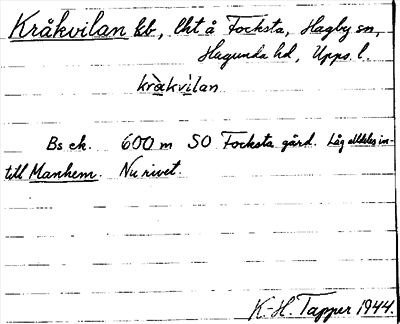 Kråkvilan bb, lht å Focksta, Hagby sn,
Hagunda hd, Upps. l.
kràkvìlan
Bs ek. 600 m SO Focksta gård. Låg alldeles in-
till Manhem. Nu rivet.
K.-H. Tapper 1944.